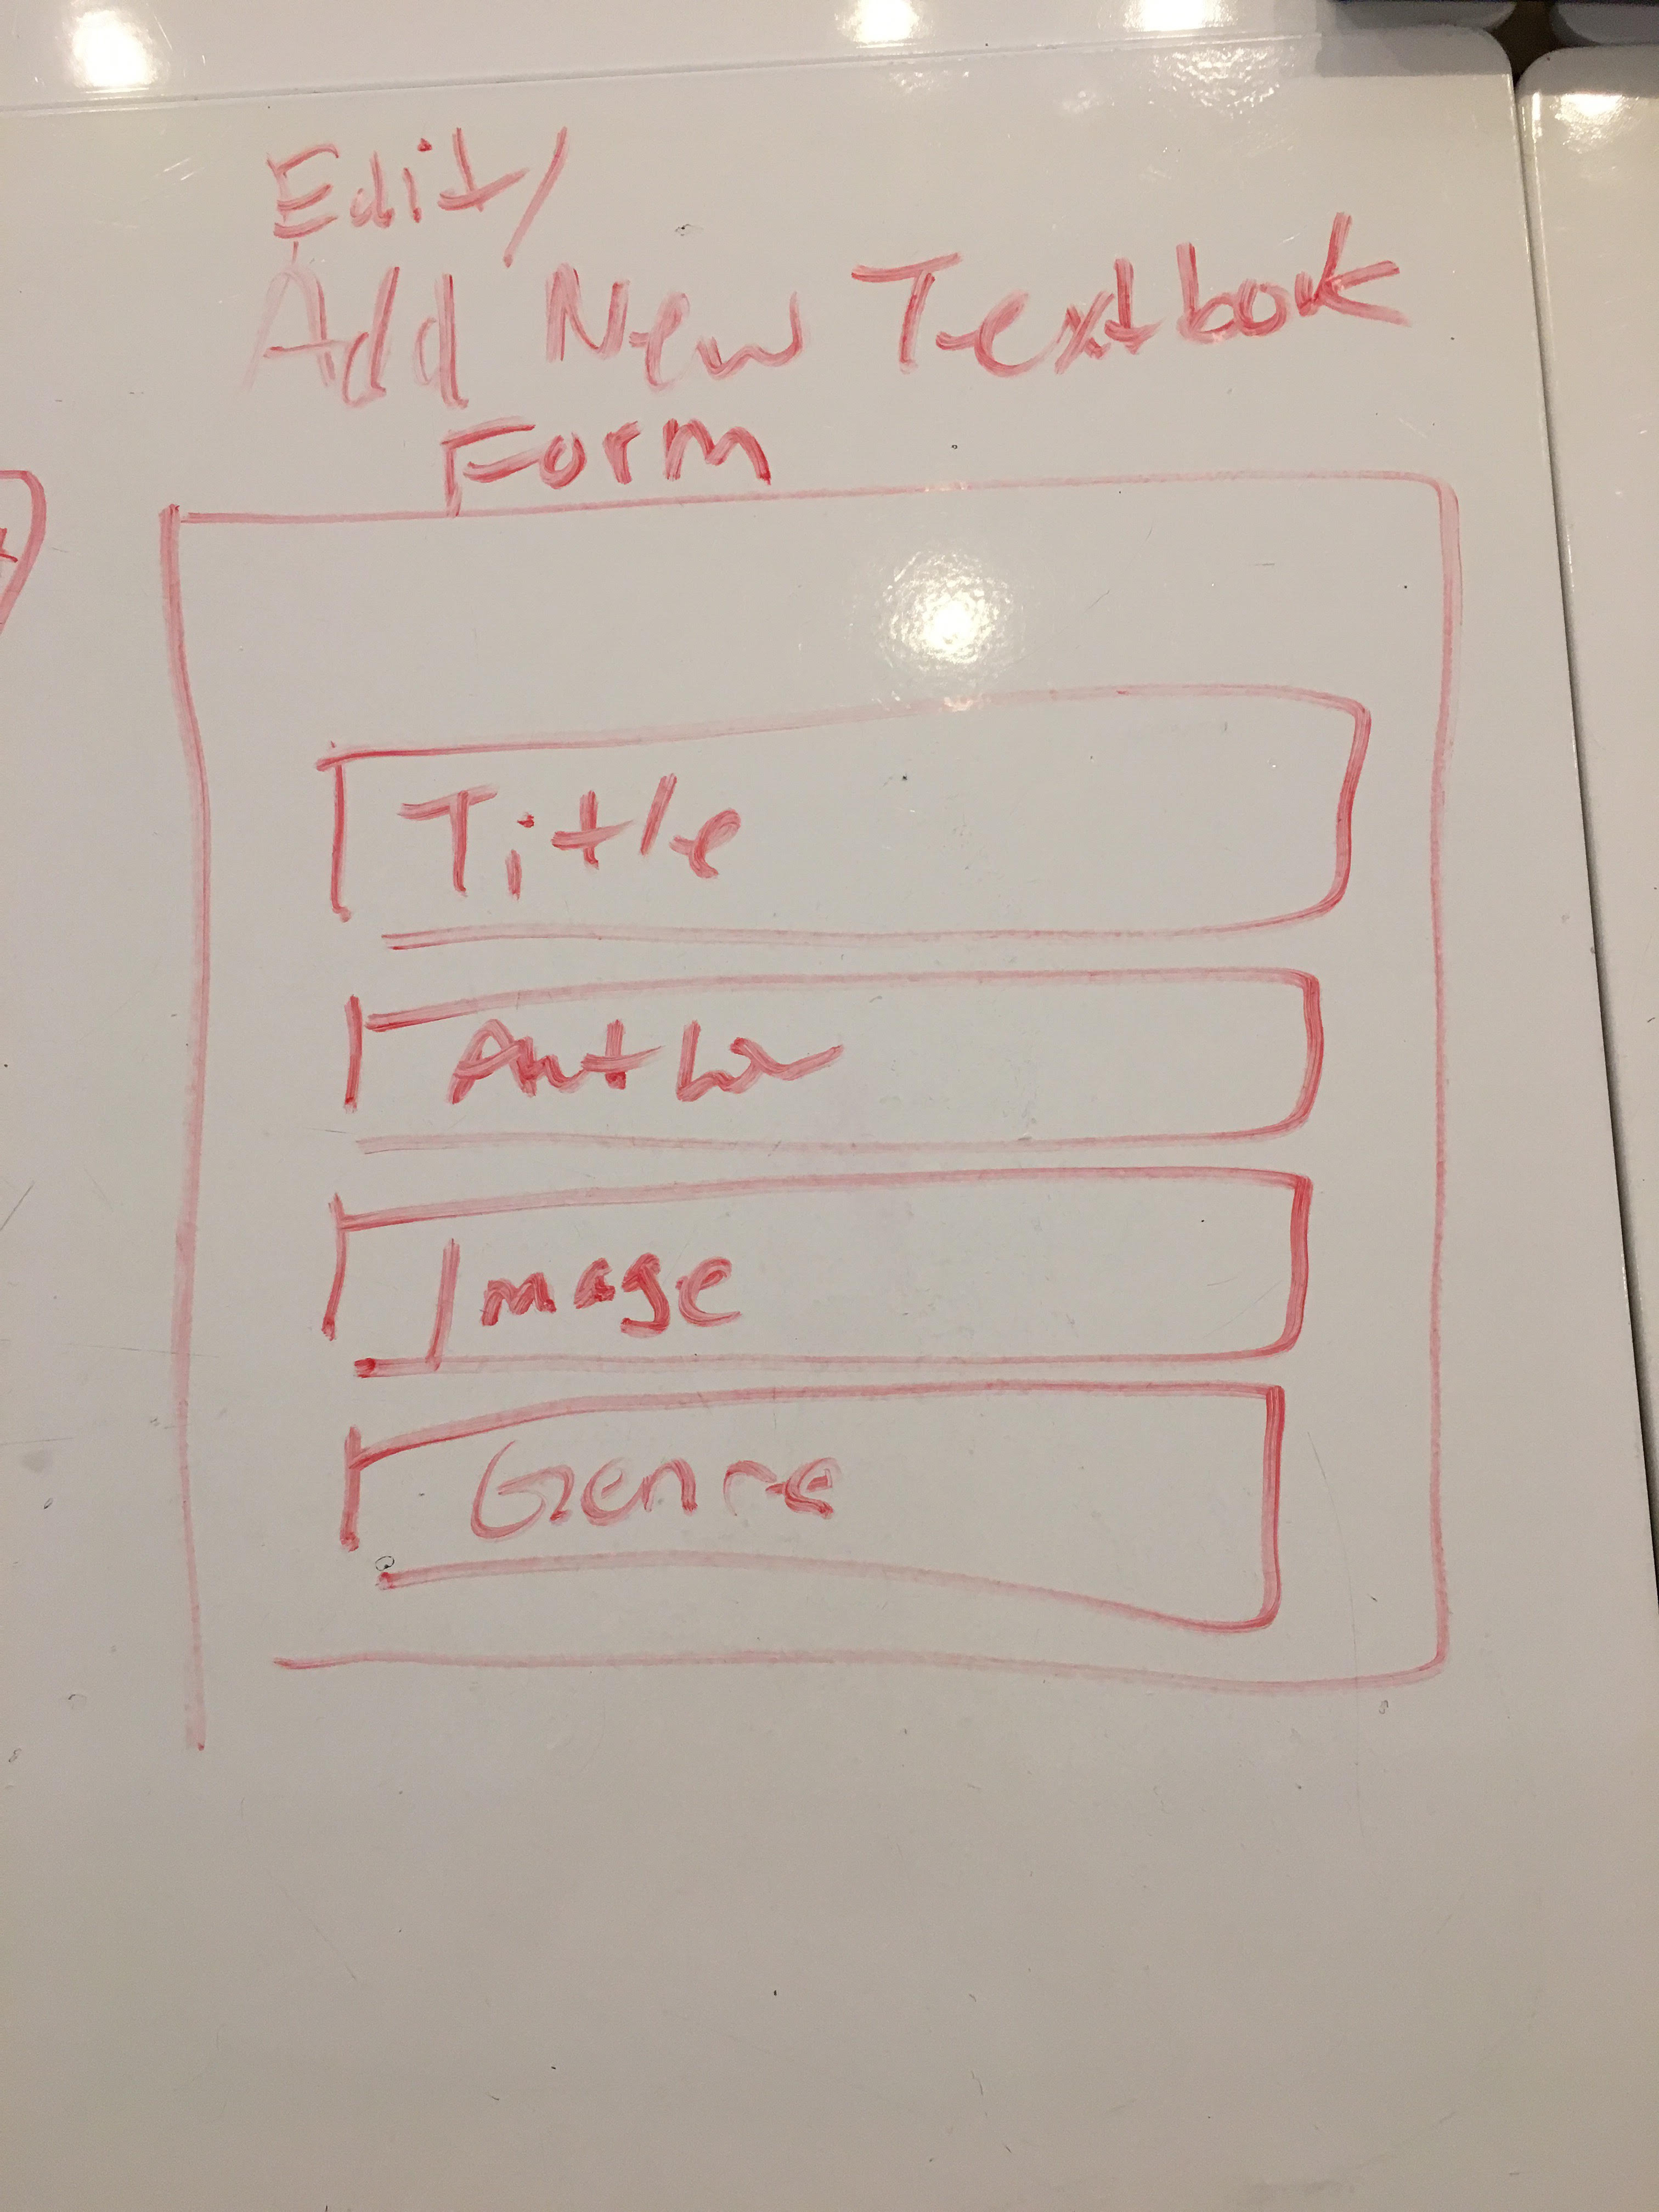 Edit/
Add New Textbook
Form
Title
Author
Image
Genre